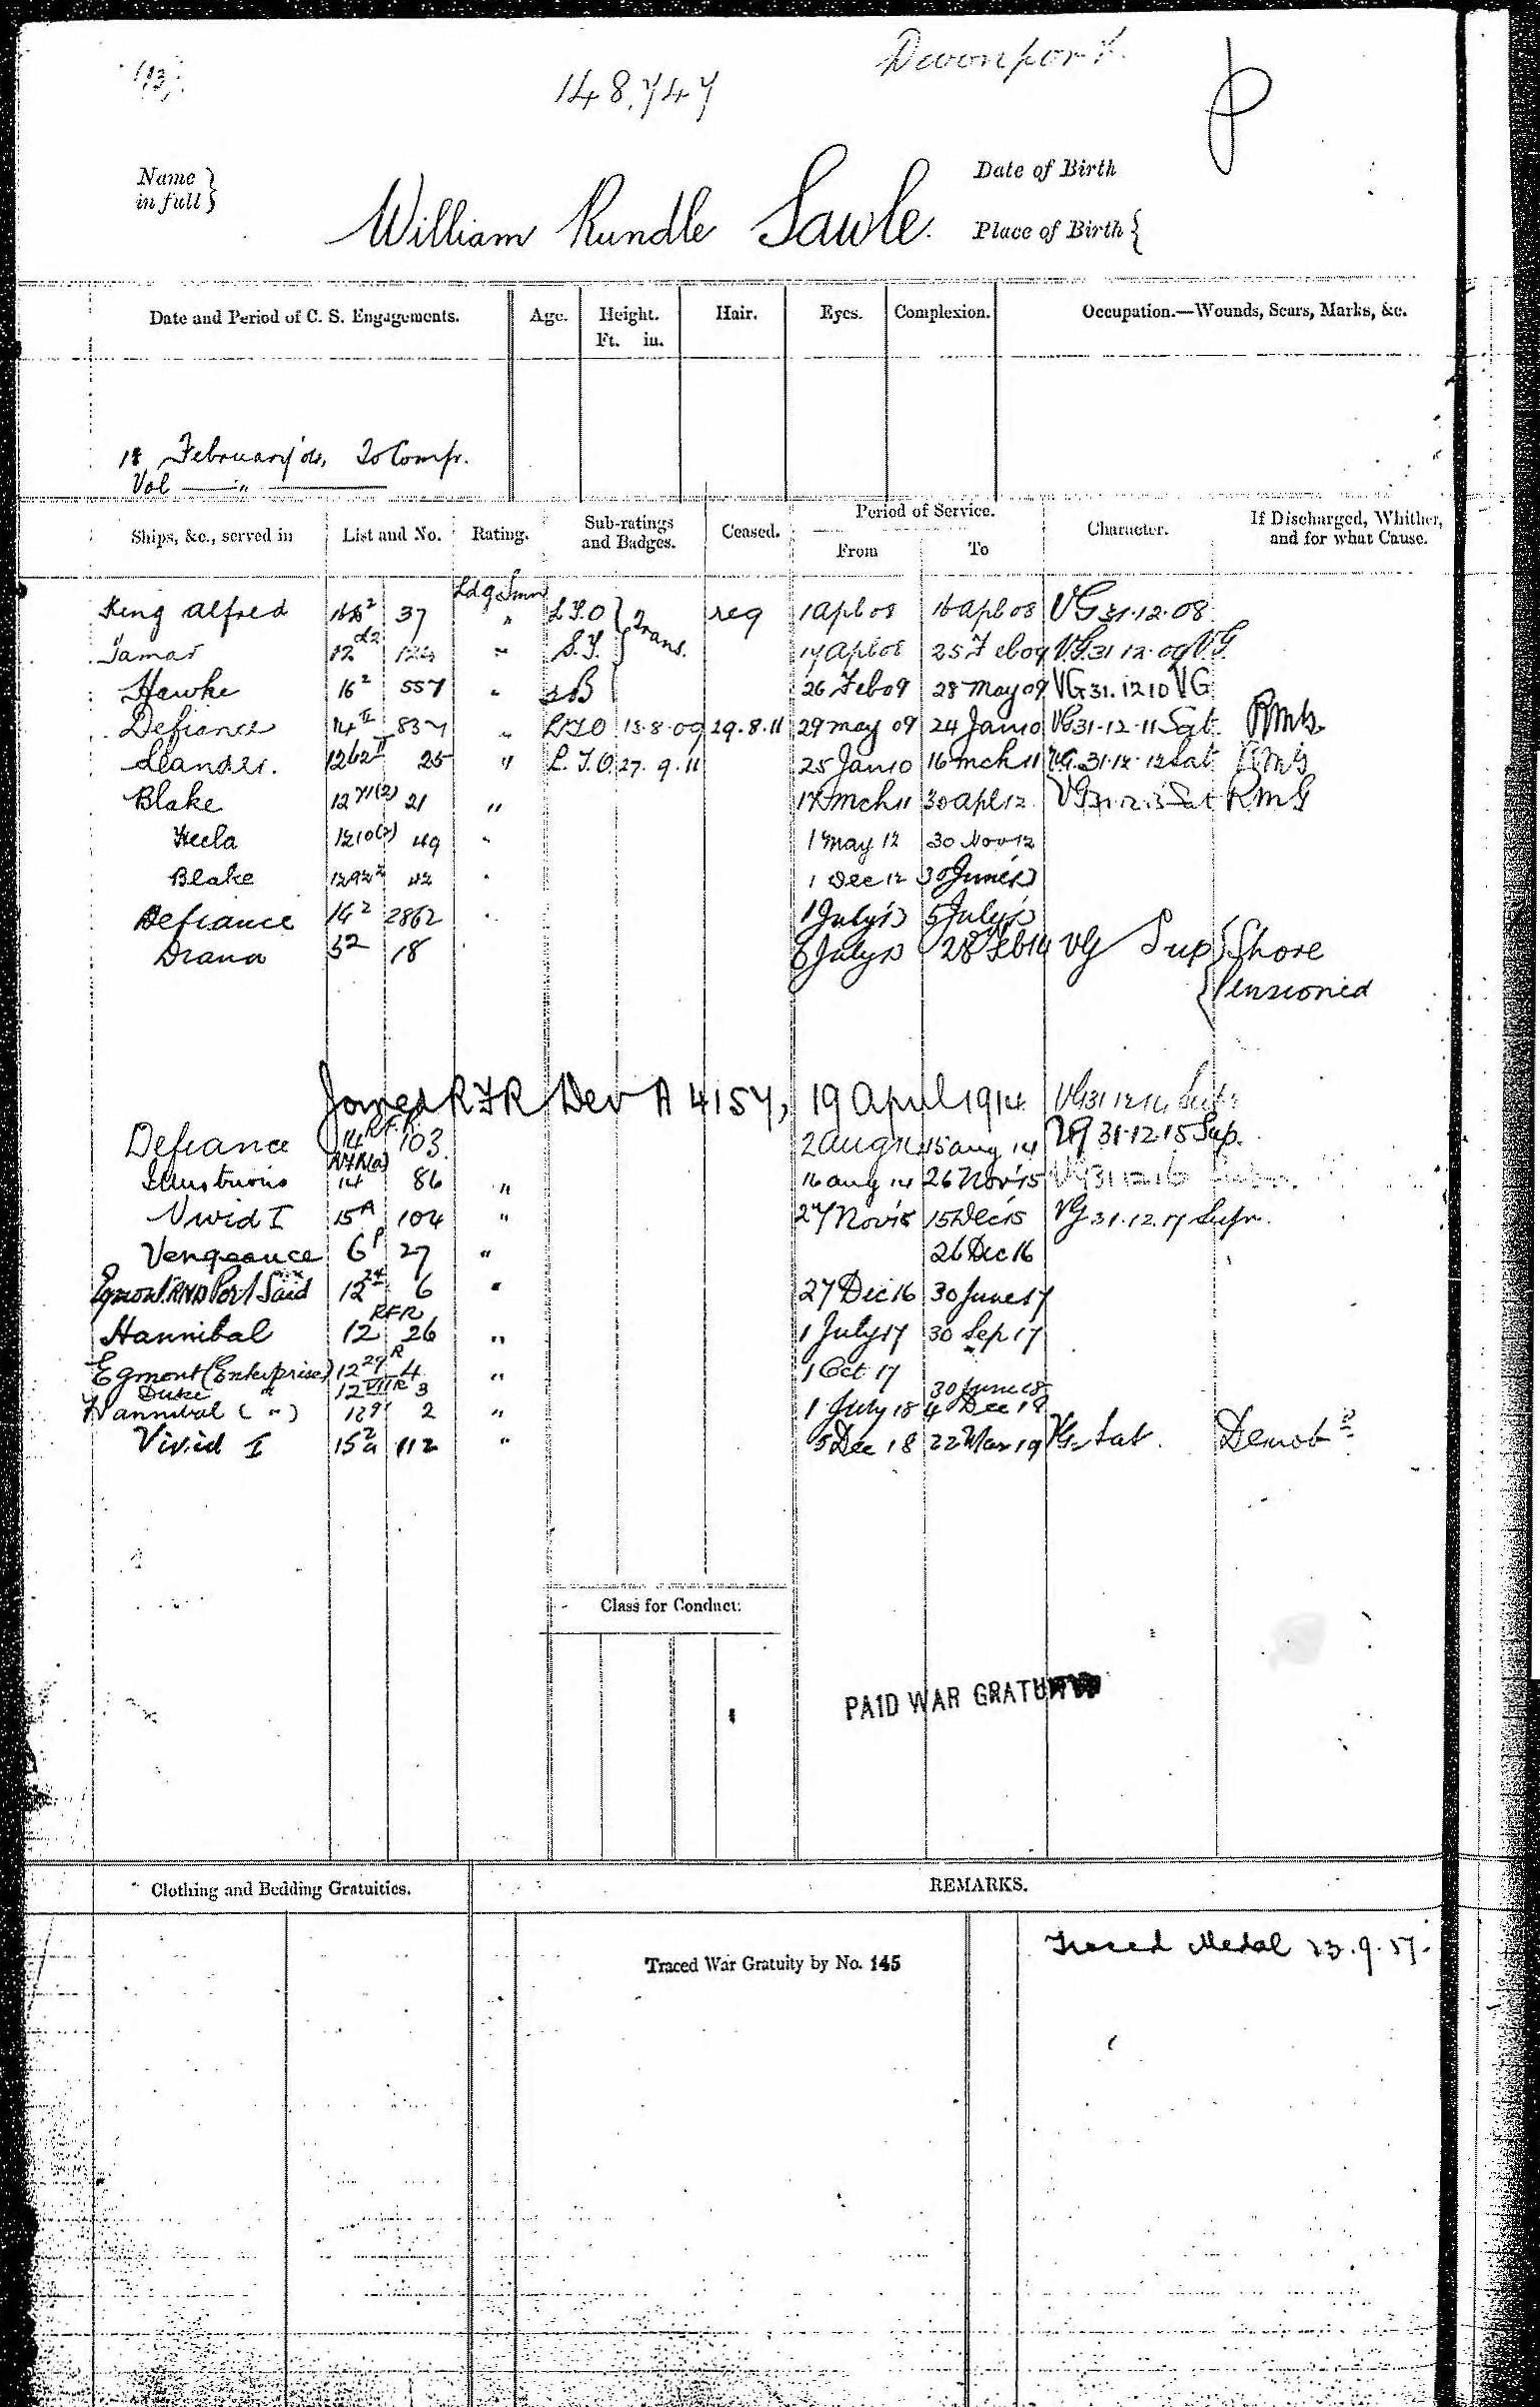 148,747
Devonport
Name in full }
William Rundle Sawle.
Date of Birth
Place of Birth {
Date and Period of C. S. Engagements.
Age.
Height. Ft. in.
Hair.
Eyes.
Complexion.
Occupation.—Wounds, Scars, Marks, &c.
18 February To Comp.
Vol — " —
Ships, &c., served in
List and No.
Rating.
Sub-ratings and Badges.
Ceased.
Period of Service.
From
To
Character.
If Discharged, Whither, and for what Cause.
Ldg Smn
King Alfred 37 " L.T.O } Trans. req 1 Apl 08 16 Apl 08 VG 31.12.08
Tamar 12 " S.G. 17 Apl 08 25 Feb 09 VG 31 12.09 VG
Hawke 16² 557 " 26 Feb 09 28 May 09 VG 31.12 10 VG
Defiance 14 II 837 " LTO 13.8.09 29.8.11 29 May 09 24 Jan 10 VG 31-12-11 Sat RMG
Leander. 25 " L.T.O. 27.9.11 25 Jan 10 16 Mch 11 VG 31.12.12 Sat RMG
Blake 12 71(2) 21 " 17 Mch 11 30 Apl 12 VG 31.12.13 Sat RMG
Hecla 12 10(2) 49 " 1 May 12 30 Nov 12
Blake 42 " 1 Dec 12 30 June 13
Defiance 14² 2862 " 1 July 13 5 July 13
Diana 5² 18 6 July 13 28 Feb 14 VG Sup { Shore
{ Pensioned
Joined RFR Dev A 4157, 19 April 1914 VG 31 12 14
Defiance 14 R.F.R. 103. 2 Aug 14 15 Aug 14 VG 31.12.15 Sup.
Illustrious 14 RFR(a) 86 " 16 Aug 14 26 Nov 15 VG 31 12 16
Vivid I 15A 104 " 27 Nov 15 15 Dec 15 VG 31.12.17 Supr.
Vengeance 6P 27 " 26 Dec 16
Egmont Port Said 12 6 " 27 Dec 16 30 June 17
Hannibal 12 RFR 26 " 1 July 17 30 Sep 17
Egmont (Enterprise) 12 4 " 1 Oct 17
Duke " 12 VIII R 3 30 June 18
Hannibal ( " ) 2 " 1 July 18 4 Dec 18
Vivid I 15 2a 112 " 5 Dec 18 22 Mar 19 VG. Sat. Demobd
Class for Conduct:
PAID WAR GRATUITY
Clothing and Bedding Gratuities.
REMARKS.
Traced War Gratuity by No. 145
Traced Medal 23.9.57.